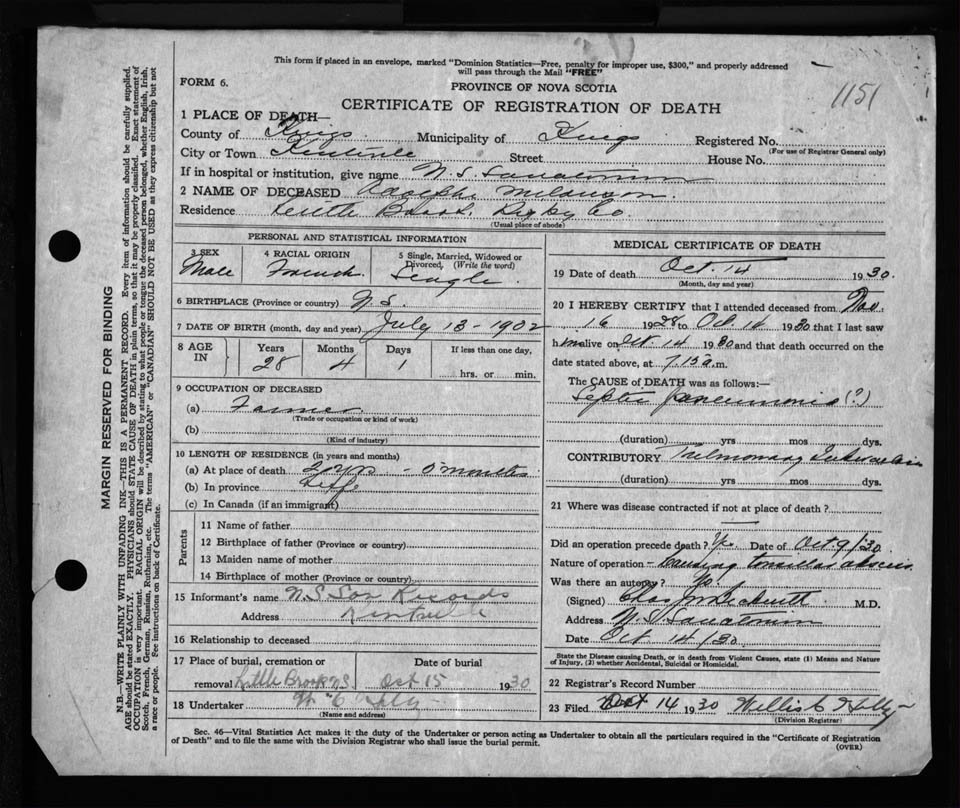 This form if placed in an envelope, marked "Dominion Statistics—Free, penalty for improper use, $300," and properly addressed
will pass through the Mail "FREE"
FORM 6.
PROVINCE OF NOVA SCOTIA
1151
CERTIFICATE OF REGISTRATION OF DEATH
1 PLACE OF DEATH—
County of Kings Municipality of Kings Registered No.
(For use of Registrar General only)
City or Town Kentville Street House No.
If in hospital or institution, give name N.S. Sanatorium
2 NAME OF DECEASED Adolphe Melanson
Residence Little Brook, Digby Co
(Usual place of abode)
PERSONAL AND STATISTICAL INFORMATION
3 SEX 4 RACIAL ORIGIN 5 Single, Married, Widowed or
Divorced, (Write the word)
Male French Single
6 BIRTHPLACE (Province or country) N.S.
7 DATE OF BIRTH (month, day and year) July 13 - 1902
8 AGE IN Years Months Days If less than one day,
28 4 1 hrs. or min.
9 OCCUPATION OF DECEASED
(a) Farmer
(Trade or occupation or kind of work)
(b)
(Kind of industry)
10 LENGTH OF RESIDENCE (in years and months)
(a) At place of death 2 yrs - months
(b) In province Life
(c) In Canada (if an immigrant)
Parents
11 Name of father
12 Birthplace of father (Province or country)
13 Maiden name of mother
14 Birthplace of mother (Province or country)
15 Informant's name N.S. San Records
Address Kentville
16 Relationship to deceased
17 Place of burial, cremation or Date of burial
removal Little Brook N.S. Oct 15 1930
18 Undertaker W C
(Name and address)
MEDICAL CERTIFICATE OF DEATH
19 Date of death Oct. 14 1930.
(Month, day and year)
20 I HEREBY CERTIFY that I attended deceased from Nov.
16 1928 to Oct. 14 1930 that I last saw
him alive on Oct. 14 1930 and that death occurred on the
date stated above, at 7.15 a.m.
The CAUSE of DEATH was as follows:—
Septic Pneumonia (?)
(duration) yrs mos dys.
CONTRIBUTORY Pulmonary Tuberculosis
(duration) yrs mos dys.
21 Where was disease contracted if not at place of death?
Did an operation precede death? Yes Date of Oct 9/30
Nature of operation - abscess
Was there an autopsy?
(Signed) Chas M.D.
Address N.S. Sanatorium
Date Oct 14/30
State the Disease causing Death, or in death from Violent Causes, state (1) Means and Nature
of Injury, (2) whether Accidental, Suicidal or Homicidal.
22 Registrar's Record Number
23 Filed Oct 14 1930 Willis C
(Division Registrar)
Sec. 46—Vital Statistics Act makes it the duty of the Undertaker or person acting as Undertaker to obtain all the particulars required in the "Certificate of Registration
of Death" and to file the same with the Division Registrar who shall issue the burial permit. (OVER)
MARGIN RESERVED FOR BINDING
N.B.—WRITE PLAINLY WITH UNFADING INK—THIS IS A PERMANENT RECORD. Every item of information should be carefully supplied.
AGE should be stated EXACTLY. PHYSICIANS should STATE CAUSE OF DEATH in plain terms, so that it may be properly classified. Exact statement of
OCCUPATION is very important. RACIAL ORIGIN will be described by stating to what people or tongue the deceased person belonged, whether English, Irish,
Scotch, French, German, Russian, Ruthenian, etc. The terms "AMERICAN" or "CANADIAN" SHOULD NOT BE USED as they express citizenship but not
a race or people. See instructions on back of Certificate.